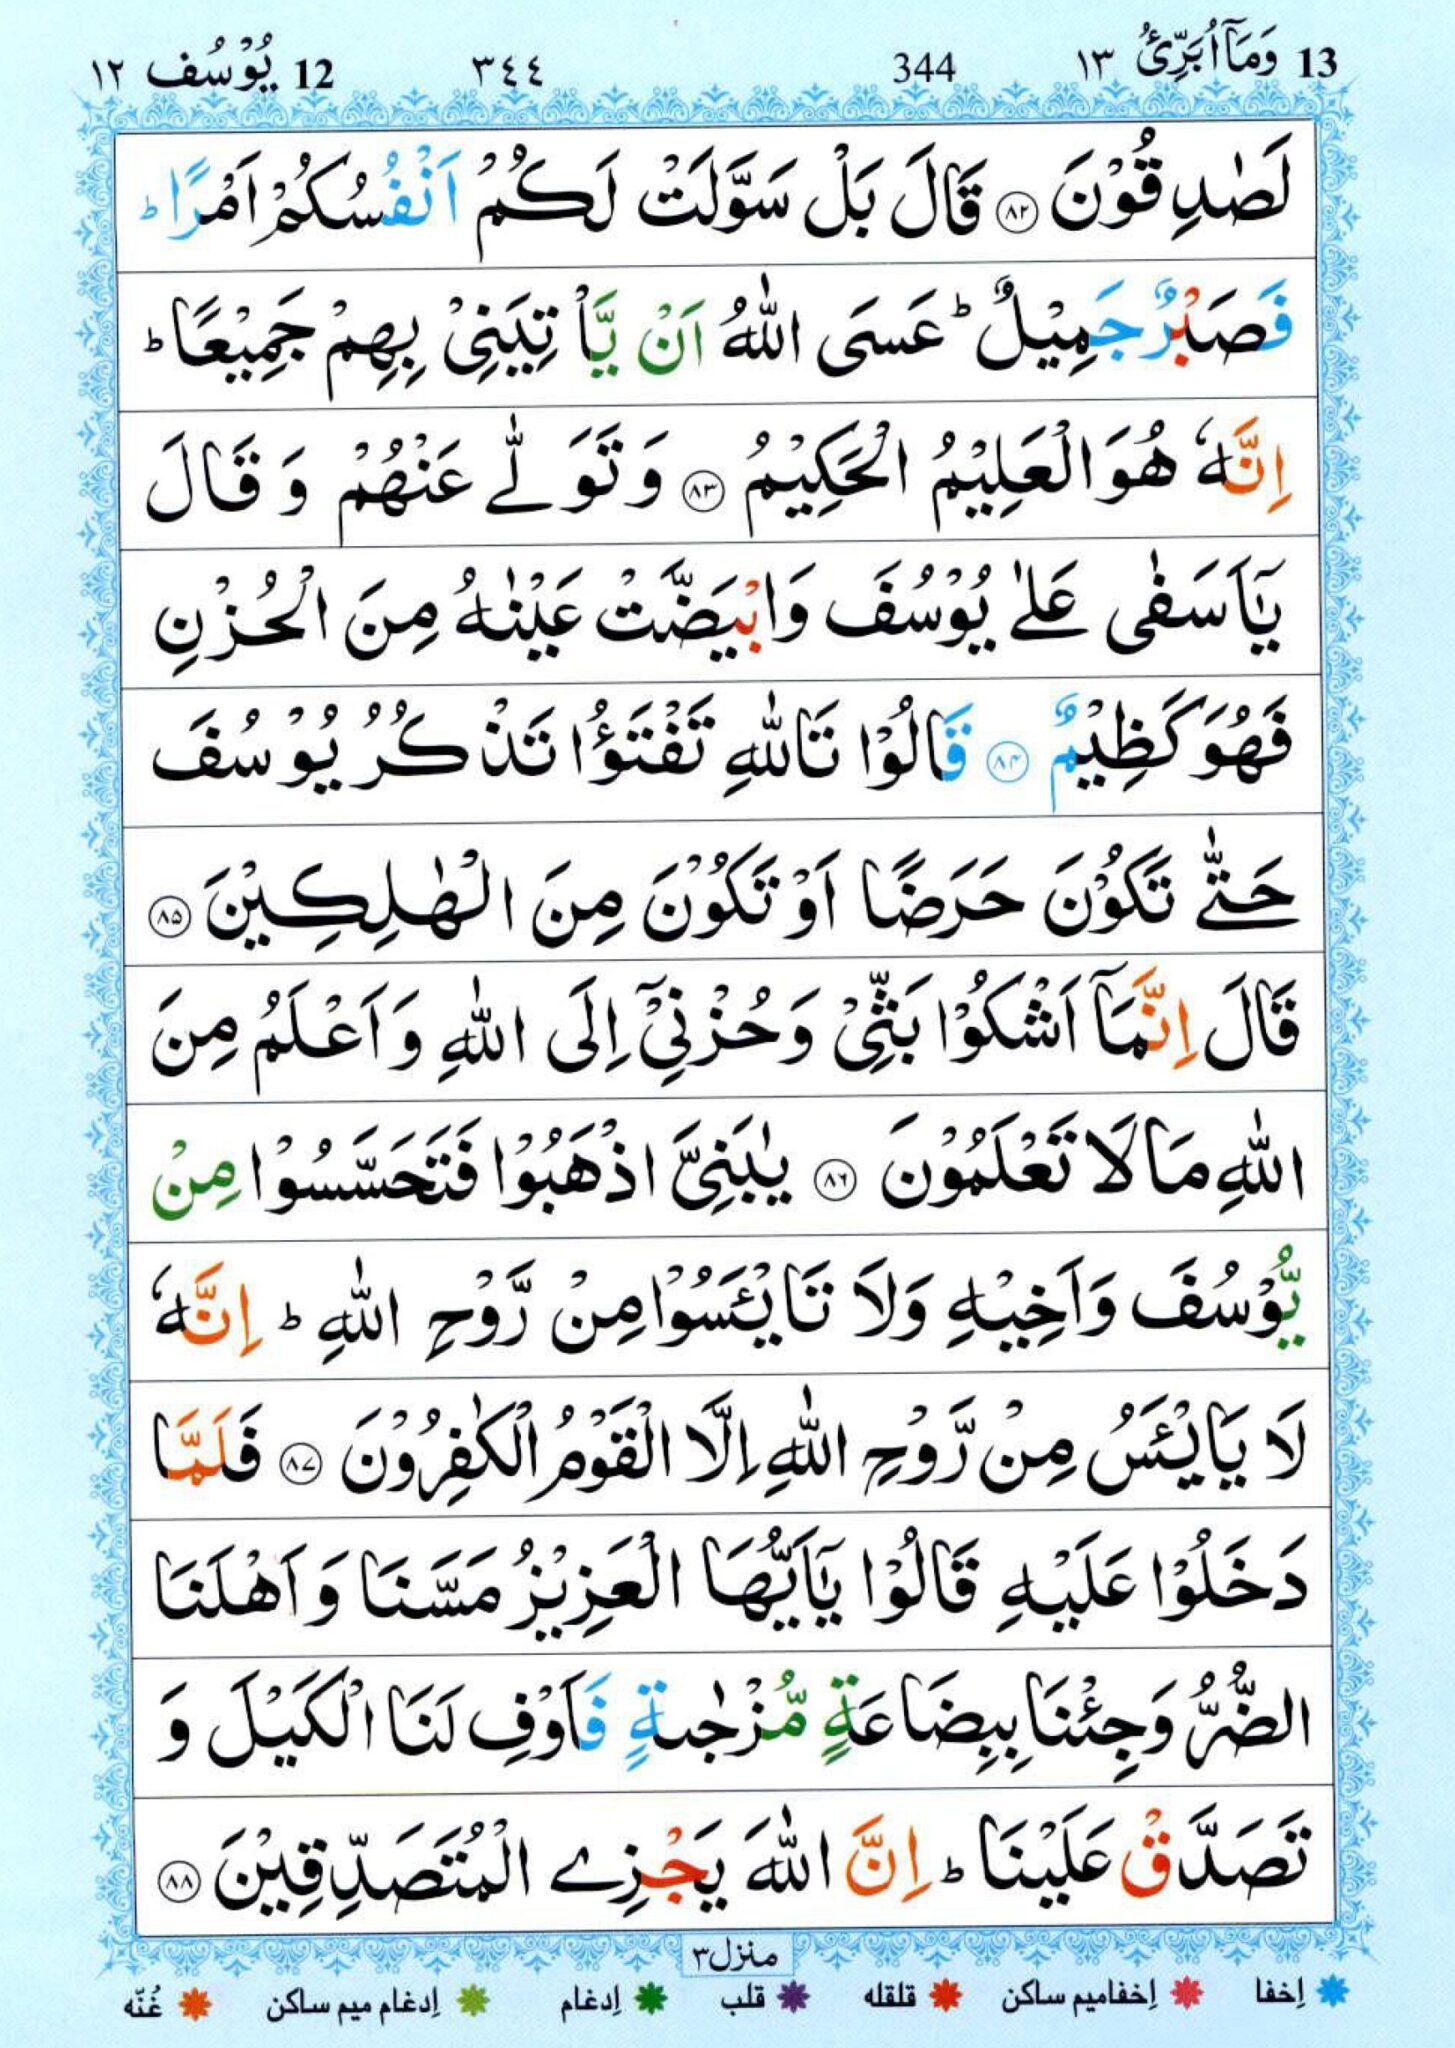 13 وَمَآ اُبَرِّئُ ١٣ 344 ٣٤٤ 12 يُوْسُف ١٢
لَصٰدِقُوْنَ ﴿۸۲﴾ قَالَ بَلْ سَوَّلَتْ لَكُمْ اَنْفُسُكُمْ اَمْرًا ؕ
فَصَبْرٌ جَمِيْلٌ ؕ عَسَى اللّٰهُ اَنْ يَّاْتِيَنِيْ بِهِمْ جَمِيْعًا ؕ
اِنَّهٗ هُوَ الْعَلِيْمُ الْحَكِيْمُ ﴿۸۳﴾ وَتَوَلّٰى عَنْهُمْ وَقَالَ
يٰۤاَسَفٰى عَلٰى يُوْسُفَ وَابْيَضَّتْ عَيْنٰهُ مِنَ الْحُزْنِ
فَهُوَ كَظِيْمٌ ﴿۸۴﴾ قَالُوْا تَاللّٰهِ تَفْتَؤُا تَذْكُرُ يُوْسُفَ
حَتّٰى تَكُوْنَ حَرَضًا اَوْ تَكُوْنَ مِنَ الْهٰلِكِيْنَ ﴿۸۵﴾
قَالَ اِنَّمَآ اَشْكُوْا بَثِّيْ وَحُزْنِيْٓ اِلَى اللّٰهِ وَاَعْلَمُ مِنَ
اللّٰهِ مَا لَا تَعْلَمُوْنَ ﴿۸۶﴾ يٰبَنِيَّ اذْهَبُوْا فَتَحَسَّسُوْا مِنْ
يُّوْسُفَ وَاَخِيْهِ وَلَا تَايْئَسُوْا مِنْ رَّوْحِ اللّٰهِ ؕ اِنَّهٗ
لَا يَايْئَسُ مِنْ رَّوْحِ اللّٰهِ اِلَّا الْقَوْمُ الْكٰفِرُوْنَ ﴿۸۷﴾ فَلَمَّا
دَخَلُوْا عَلَيْهِ قَالُوْا يٰۤاَيُّهَا الْعَزِيْزُ مَسَّنَا وَاَهْلَنَا
الضُّرُّ وَجِئْنَا بِبِضَاعَةٍ مُّزْجٰىةٍ فَاَوْفِ لَنَا الْكَيْلَ وَ
تَصَدَّقْ عَلَيْنَا ؕ اِنَّ اللّٰهَ يَجْزِي الْمُتَصَدِّقِيْنَ ﴿۸۸﴾
منزل٣
اِخفا اِخفامیم ساکن قلقله قلب اِدغام اِدغام میم ساکن غُنّه